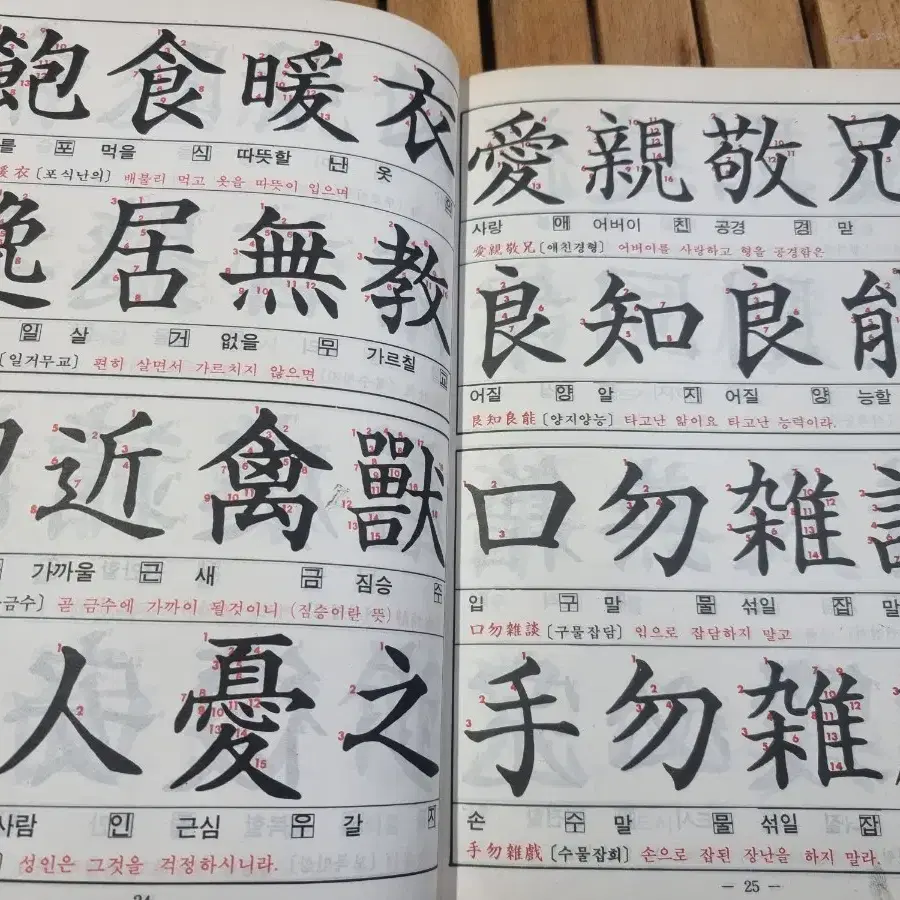 飽食暖衣
를 포 먹을 식 따뜻할 난 옷
暖衣 [포식난의] 배불리 먹고 옷을 따뜻이 입으며
逸居無教
일 살 거 없을 무 가르칠 교
[일거무교] 편히 살면서 가르치지 않으면
近禽獸
가까울 근 새 금 짐승 수
금수] 곧 금수에 가까이 될것이니 (짐승이란 뜻)
人憂之
사람 인 근심 우 갈 지
] 성인은 그것을 걱정하시니라.
愛親敬兄
사랑 애 어버이 친 공경 경 맏
愛親敬兄 [애친경형] 어버이를 사랑하고 형을 공경함은
良知良能
어질 양 알 지 어질 양 능할
良知良能 [양지양능] 타고난 앎이요 타고난 능력이라.
口勿雜
입 구 말 물 섞일 잡 말
口勿雜談 [구물잡담] 입으로 잡담하지 말고
手勿雜
손 수 말 물 섞일 잡
手勿雜戲 [수물잡희] 손으로 잡된 장난을 하지 말라.
— 25 —